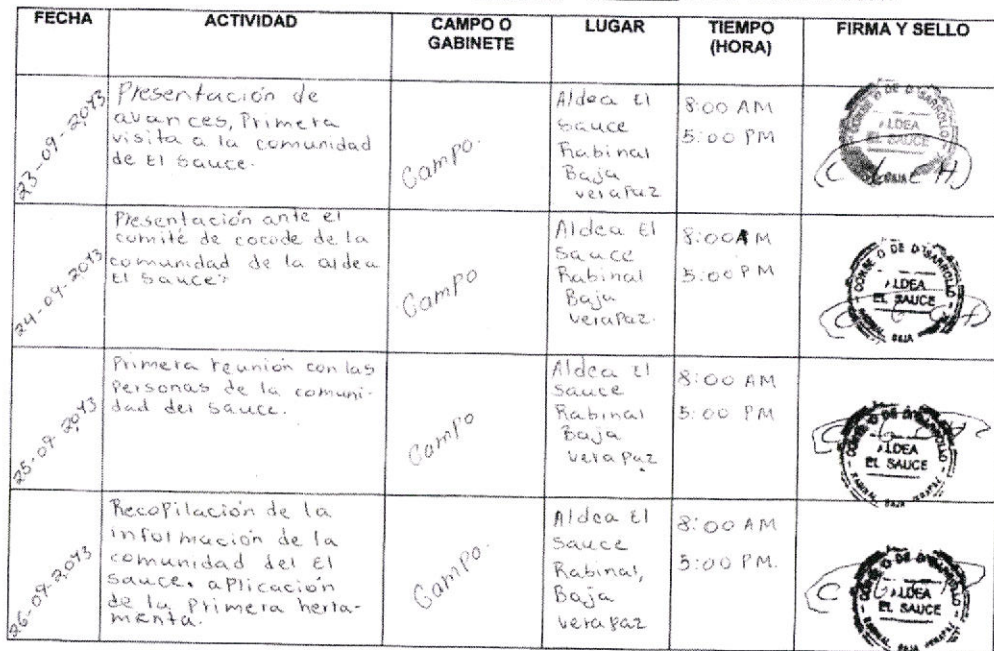 FECHA
ACTIVIDAD
CAMPO O
GABINETE
LUGAR
TIEMPO
(HORA)
FIRMA Y SELLO
23-09-2,013
Presentación de
avances, Primera
visita a la comunidad
de El Sauce.
Campo.
Aldea El
Sauce
Rabinal
Baja
verapaz
8:00 AM
5:00 PM
ALDEA
EL SAUCE
24-09-2013
Presentación ante el
comité de cocode de la
comunidad de la aldea
El Sauce.
Campo
Aldea El
Sauce
Rabinal
Baja
verapaz.
8:00 AM
5:00 PM
CONSEJO DE DESARROLLO
ALDEA
EL SAUCE
RABINAL BAJA
25-09-2,013
Primera reunión con las
Personas de la comuni-
dad del Sauce.
Campo
Aldea El
Sauce
Rabinal
Baja
verapaz
8:00 AM
5:00 PM
ALDEA
EL SAUCE
RABINAL BAJA VERAPAZ
26-09-2,013
Recopilación de la
información de la
comunidad del El
Sauce. aplicación
de la Primera herra-
menta.
Campo.
Aldea El
Sauce
Rabinal,
Baja
verapaz
8:00 AM
5:00 PM.
ALDEA
EL SAUCE
RABINAL BAJA VERAPAZ